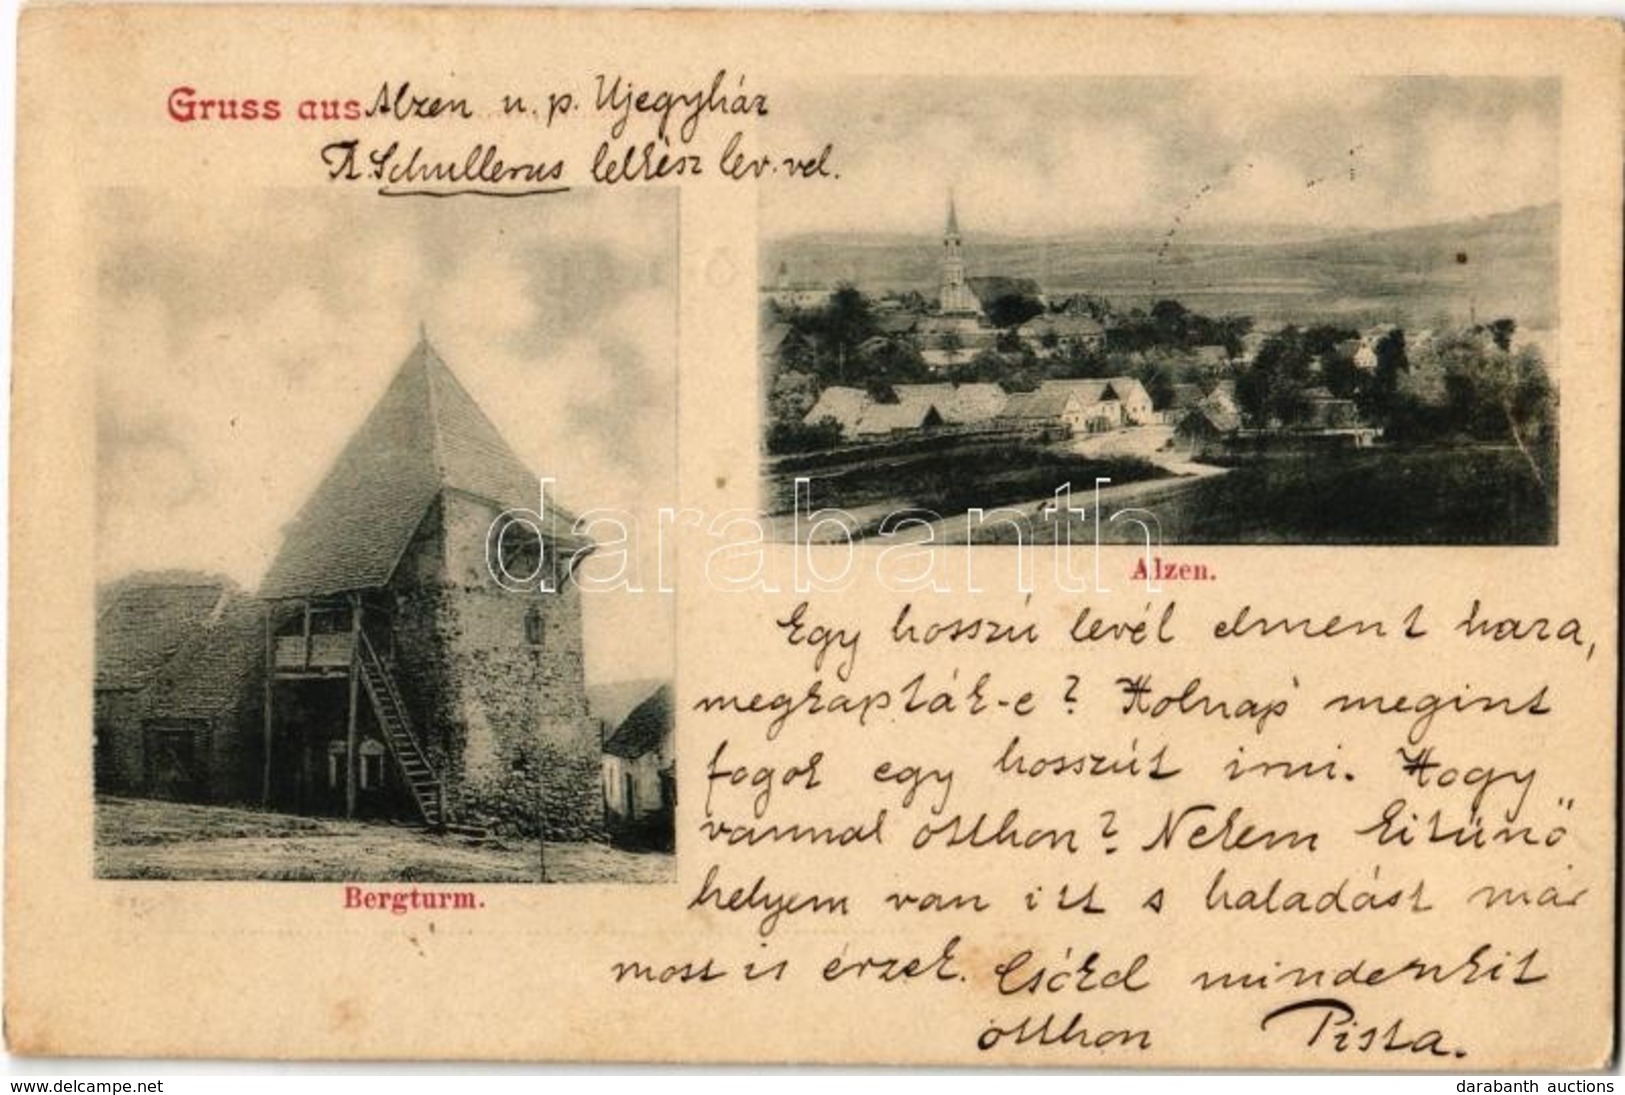 Gruss aus Alzen u. p. Ujegyház
A. Schullerus lelkész lev. vel.
Alzen.
Bergturm.
Egy hosszú levél elment haza,
megkapták-e? Holnap megint
fogok egy hosszút irni. Hogy
vannak otthon? Nekem kitünő
helyem van itt s haladást már
most is érzek. Csókol mindenkit
otthon Pista.
darabanth
delcampe.net
darabanth auctions